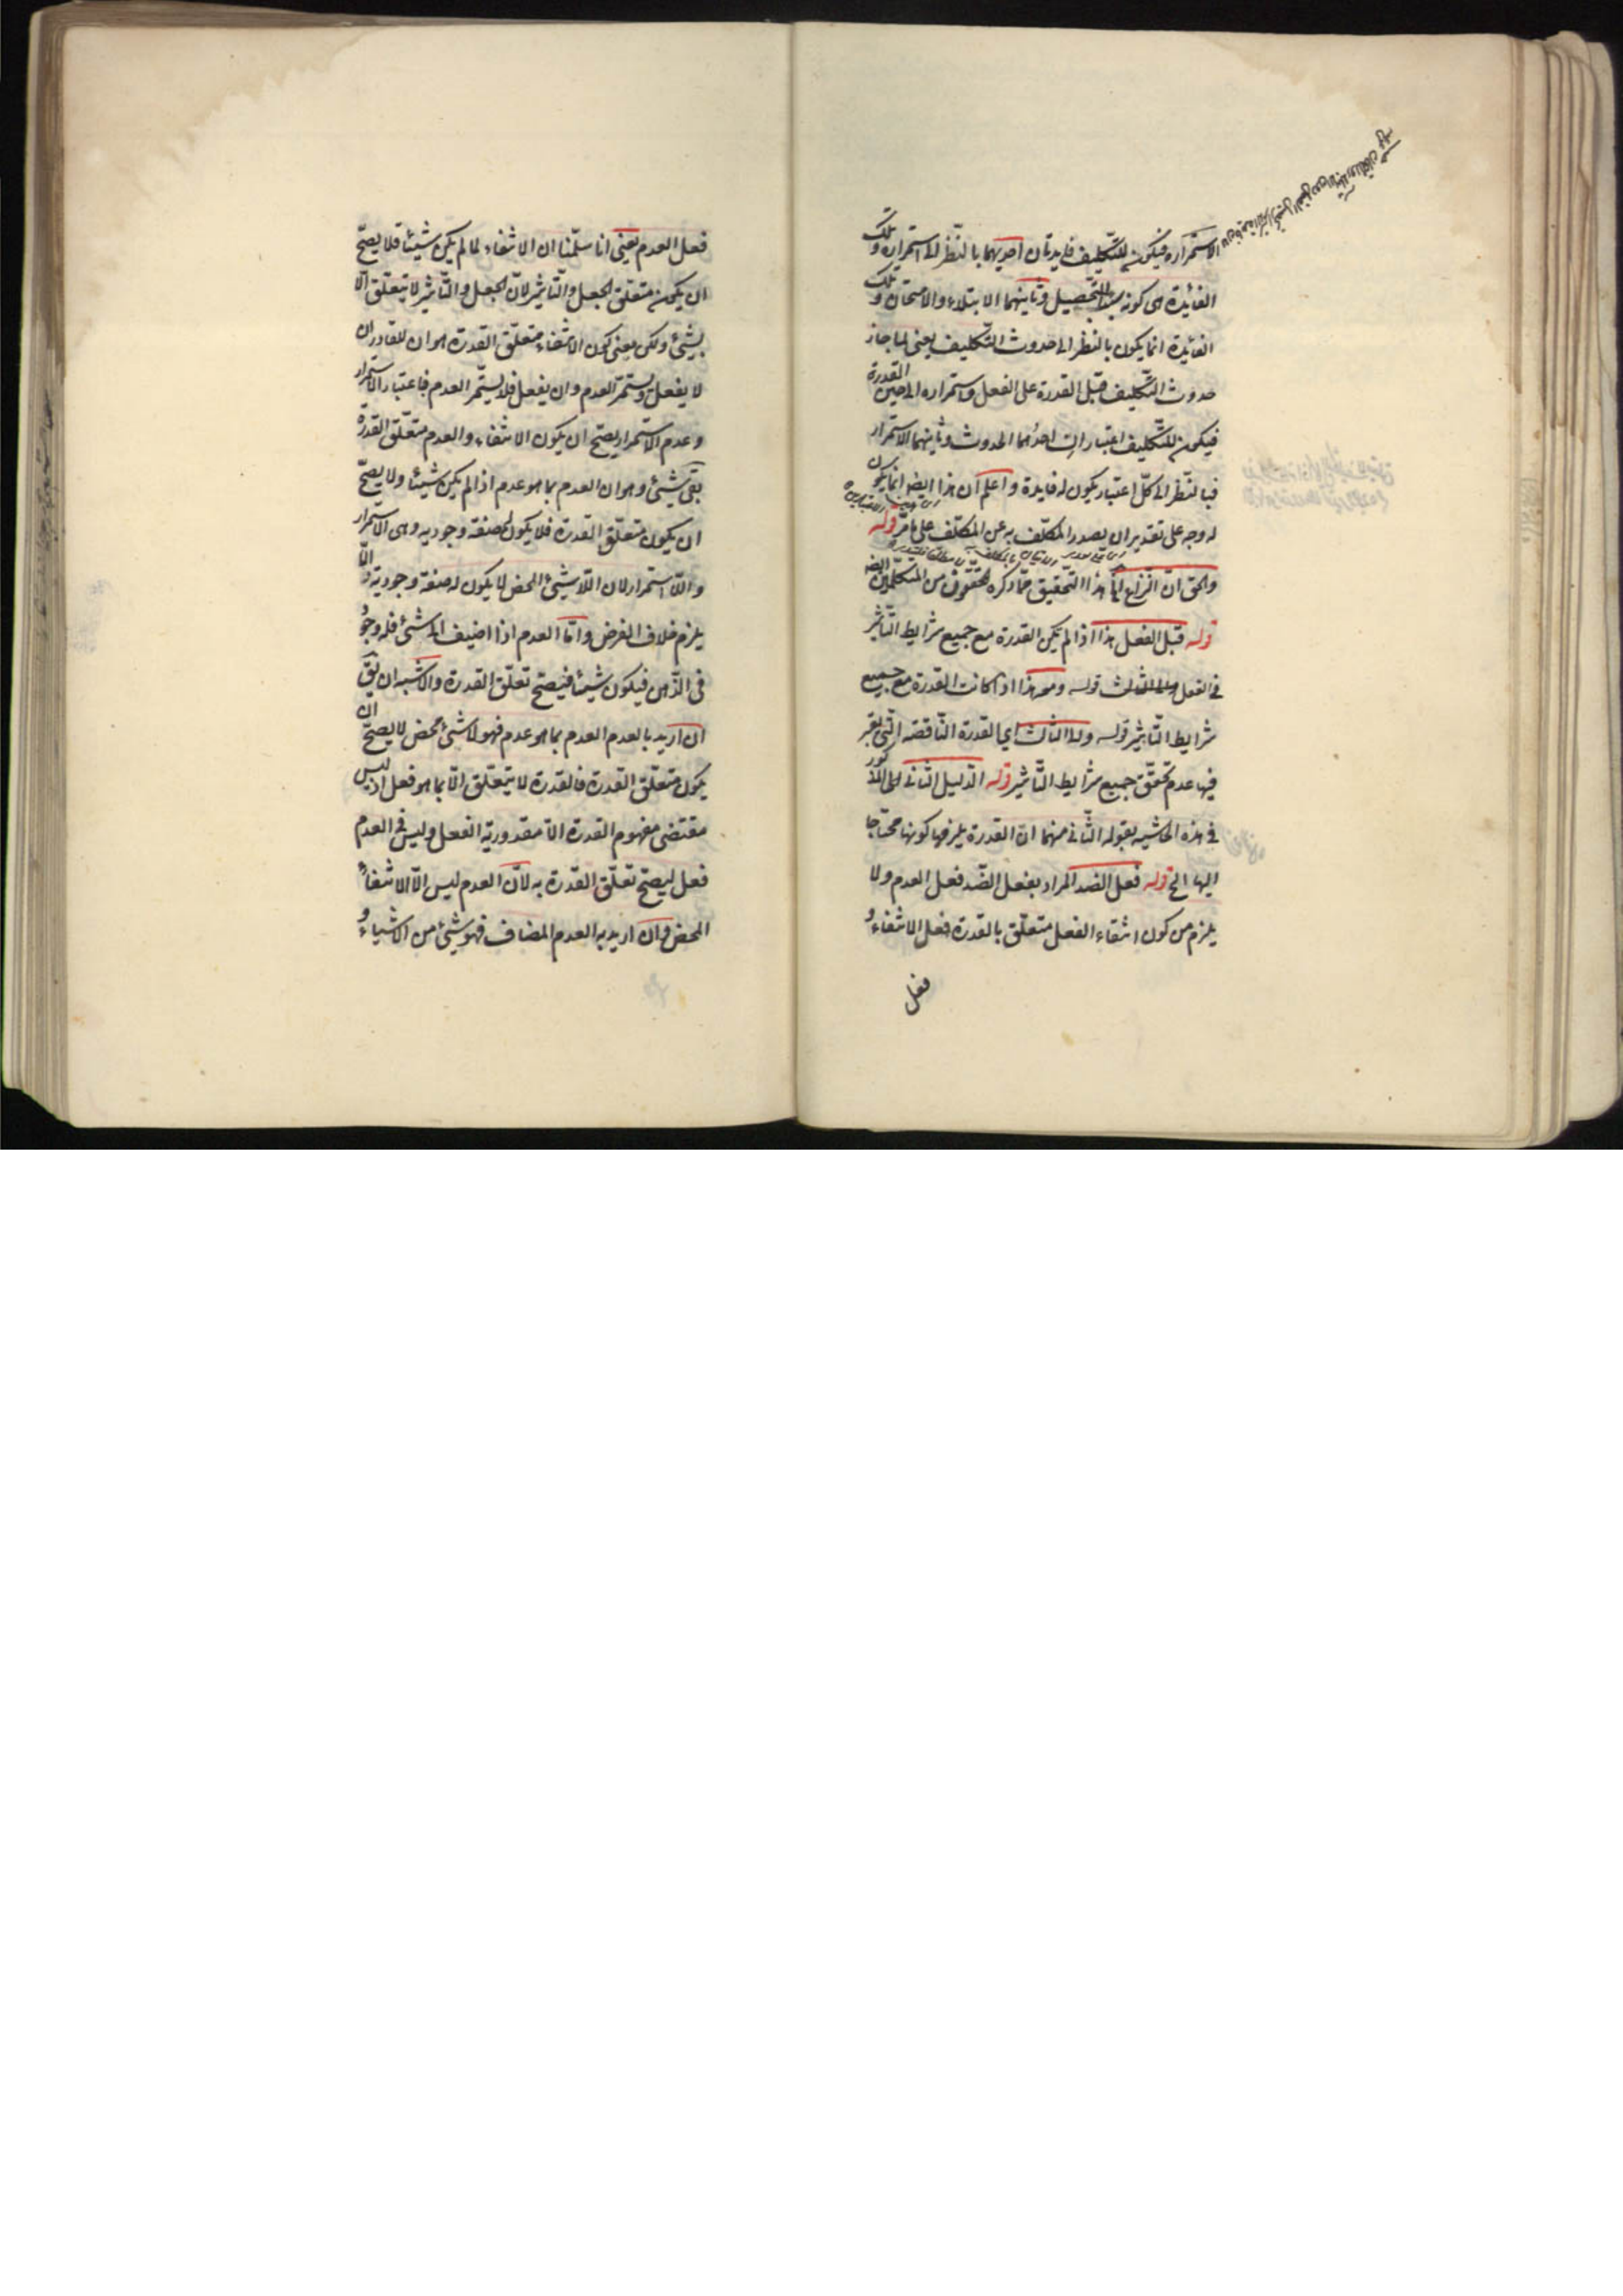 الاستمراره فيكون للتكليف فايدتان احديهما بالنظر الى استمراره وتلك
الفائدة هى كونه سببا للتحصيل وثانيهما الابتلاء والامتحان وتلك
الفائدة انما يكون بالنظر الى حدوث التكليف يعنى لما جاز
حدوث التكليف قبل القدرة على الفعل واستمراره الى حين القدرة
فيكون للتكليف اعتباران احدهما الحدوث وثانيهما الاستمرار
فبالنظر الى كل اعتبار يكون له فايدة واعلم ان هذا ايضه انما يكون
له وجه على تقدير ان يصدر المكلف به عن المكلف على ما مر قوله
والحق ان النزاع هذا التحقيق مما ذكره محققون من المتكلمين ايضه
قوله قبل الفعل هذا اذا لم يكن القدرة مع جميع شرايط التأثير
فى الفعل الثالث قوله ومعه هذا اذا كانت القدرة مع جميع
شرايط التأثير قوله ولا الثالث اى القدرة الناقصة التى يعتبر
فيها عدم تحقق جميع شرايط التأثير قوله الدليل الثانى المذكور
فى هذه الحاشيه بقوله الثانى منهما ان القدرة يلزمها كونها محتاجا
اليها الخ قوله فعل الضد المراد بفعل الضد فعل العدم ولا
يلزم من كون انتفاء الفعل متعلق بالقدرة فعل الانتفاء و
فعل
فعل العدم يعنى انا سلمنا ان الانتفاء لما لم يكن شيئا فلا يصح
ان يكون متعلق الجعل والتأثير لان الجعل والتأثير لا يتعلق الا
بشئ ولكن معنى كون الانتفاء متعلق القدرة هو ان للقادر ان
لا يفعل ويستمر العدم وان يفعل فلا يستمر العدم فاعتبار الاستمرار
وعدم الاستمرار يصح ان يكون الانتفاء والعدم متعلق القدرة
بقى شئ وهو ان العدم بما هو عدم اذا لم يكن شيئا ولا يصح
ان يكون متعلق القدرة فلا يكون له صفة وجوديه وهى الاستمرار
واللا استمرار لان اللاشئ المحض لا يكون له صفة وجودية والا
يلزم خلاف الفرض واما العدم اذا اضيف الى شئ فله وجود
فى الذهن فيكون شيئا فيصح تعلق القدرة والاشبه ان يق
ان اريد بالعدم العدم بما هو عدم فهو لا شئ محض لا يصح ان
يكون متعلق القدرة فالقدرة لا يتعلق الا بما هو فعل اذ ليس
مقتضى مفهوم القدرة الا مقدورية الفعل وليس فى العدم
فعل ليصح تعلق القدرة به لان العدم ليس الا الانتفاء
المحض وان اريد به العدم المضاف فهو شئ من الاشياء و